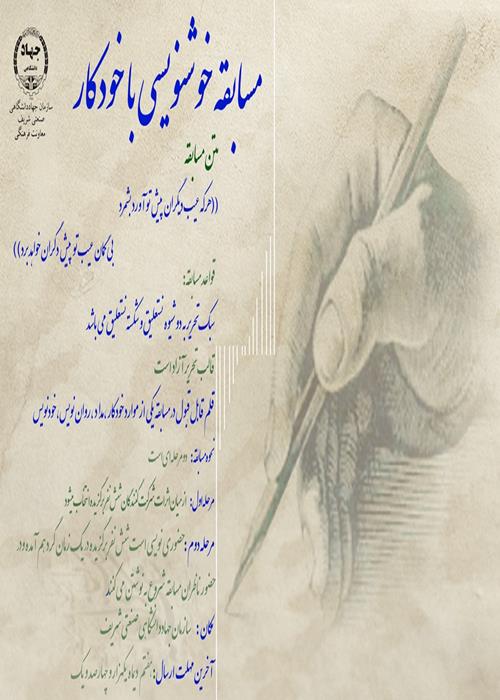 جهاد
دانشگاهی
سازمان جهاددانشگاهی
صنعتی شریف
معاونت فرهنگی
مسابقه خوشنویسی با خودکار
متن مسابقه
((هرکه عیب دیگران پیش تو آورد بشمرد
بی گمان عیب تو پیش دگران خواهد برد))
قواعد مسابقه:
سبک تحریر به دو شیوه نستعلیق و شکسته نستعلیق می باشد
قالب تحریر آزاد است
قلم قابل قبول در مسابقه یکی از موارد خودکار، مداد، روان نویس، خودنویس
نحوه مسابقه: دو مرحله ای است
مرحله اول: از میان اثرات شرکت کنندگان شش نفر برگزیده انتخاب میشود
مرحله دوم: حضوری نویسی است شش نفر برگزیده در یک زمان گرد هم آمده و در
حضور ناظران مسابقه شروع به نوشتن می کنند
مکان: سازمان جهاد دانشگاهی صنعتی شریف
آخرین مهلت ارسال: هفتم دیماه یکهزار و چهارصد و یک